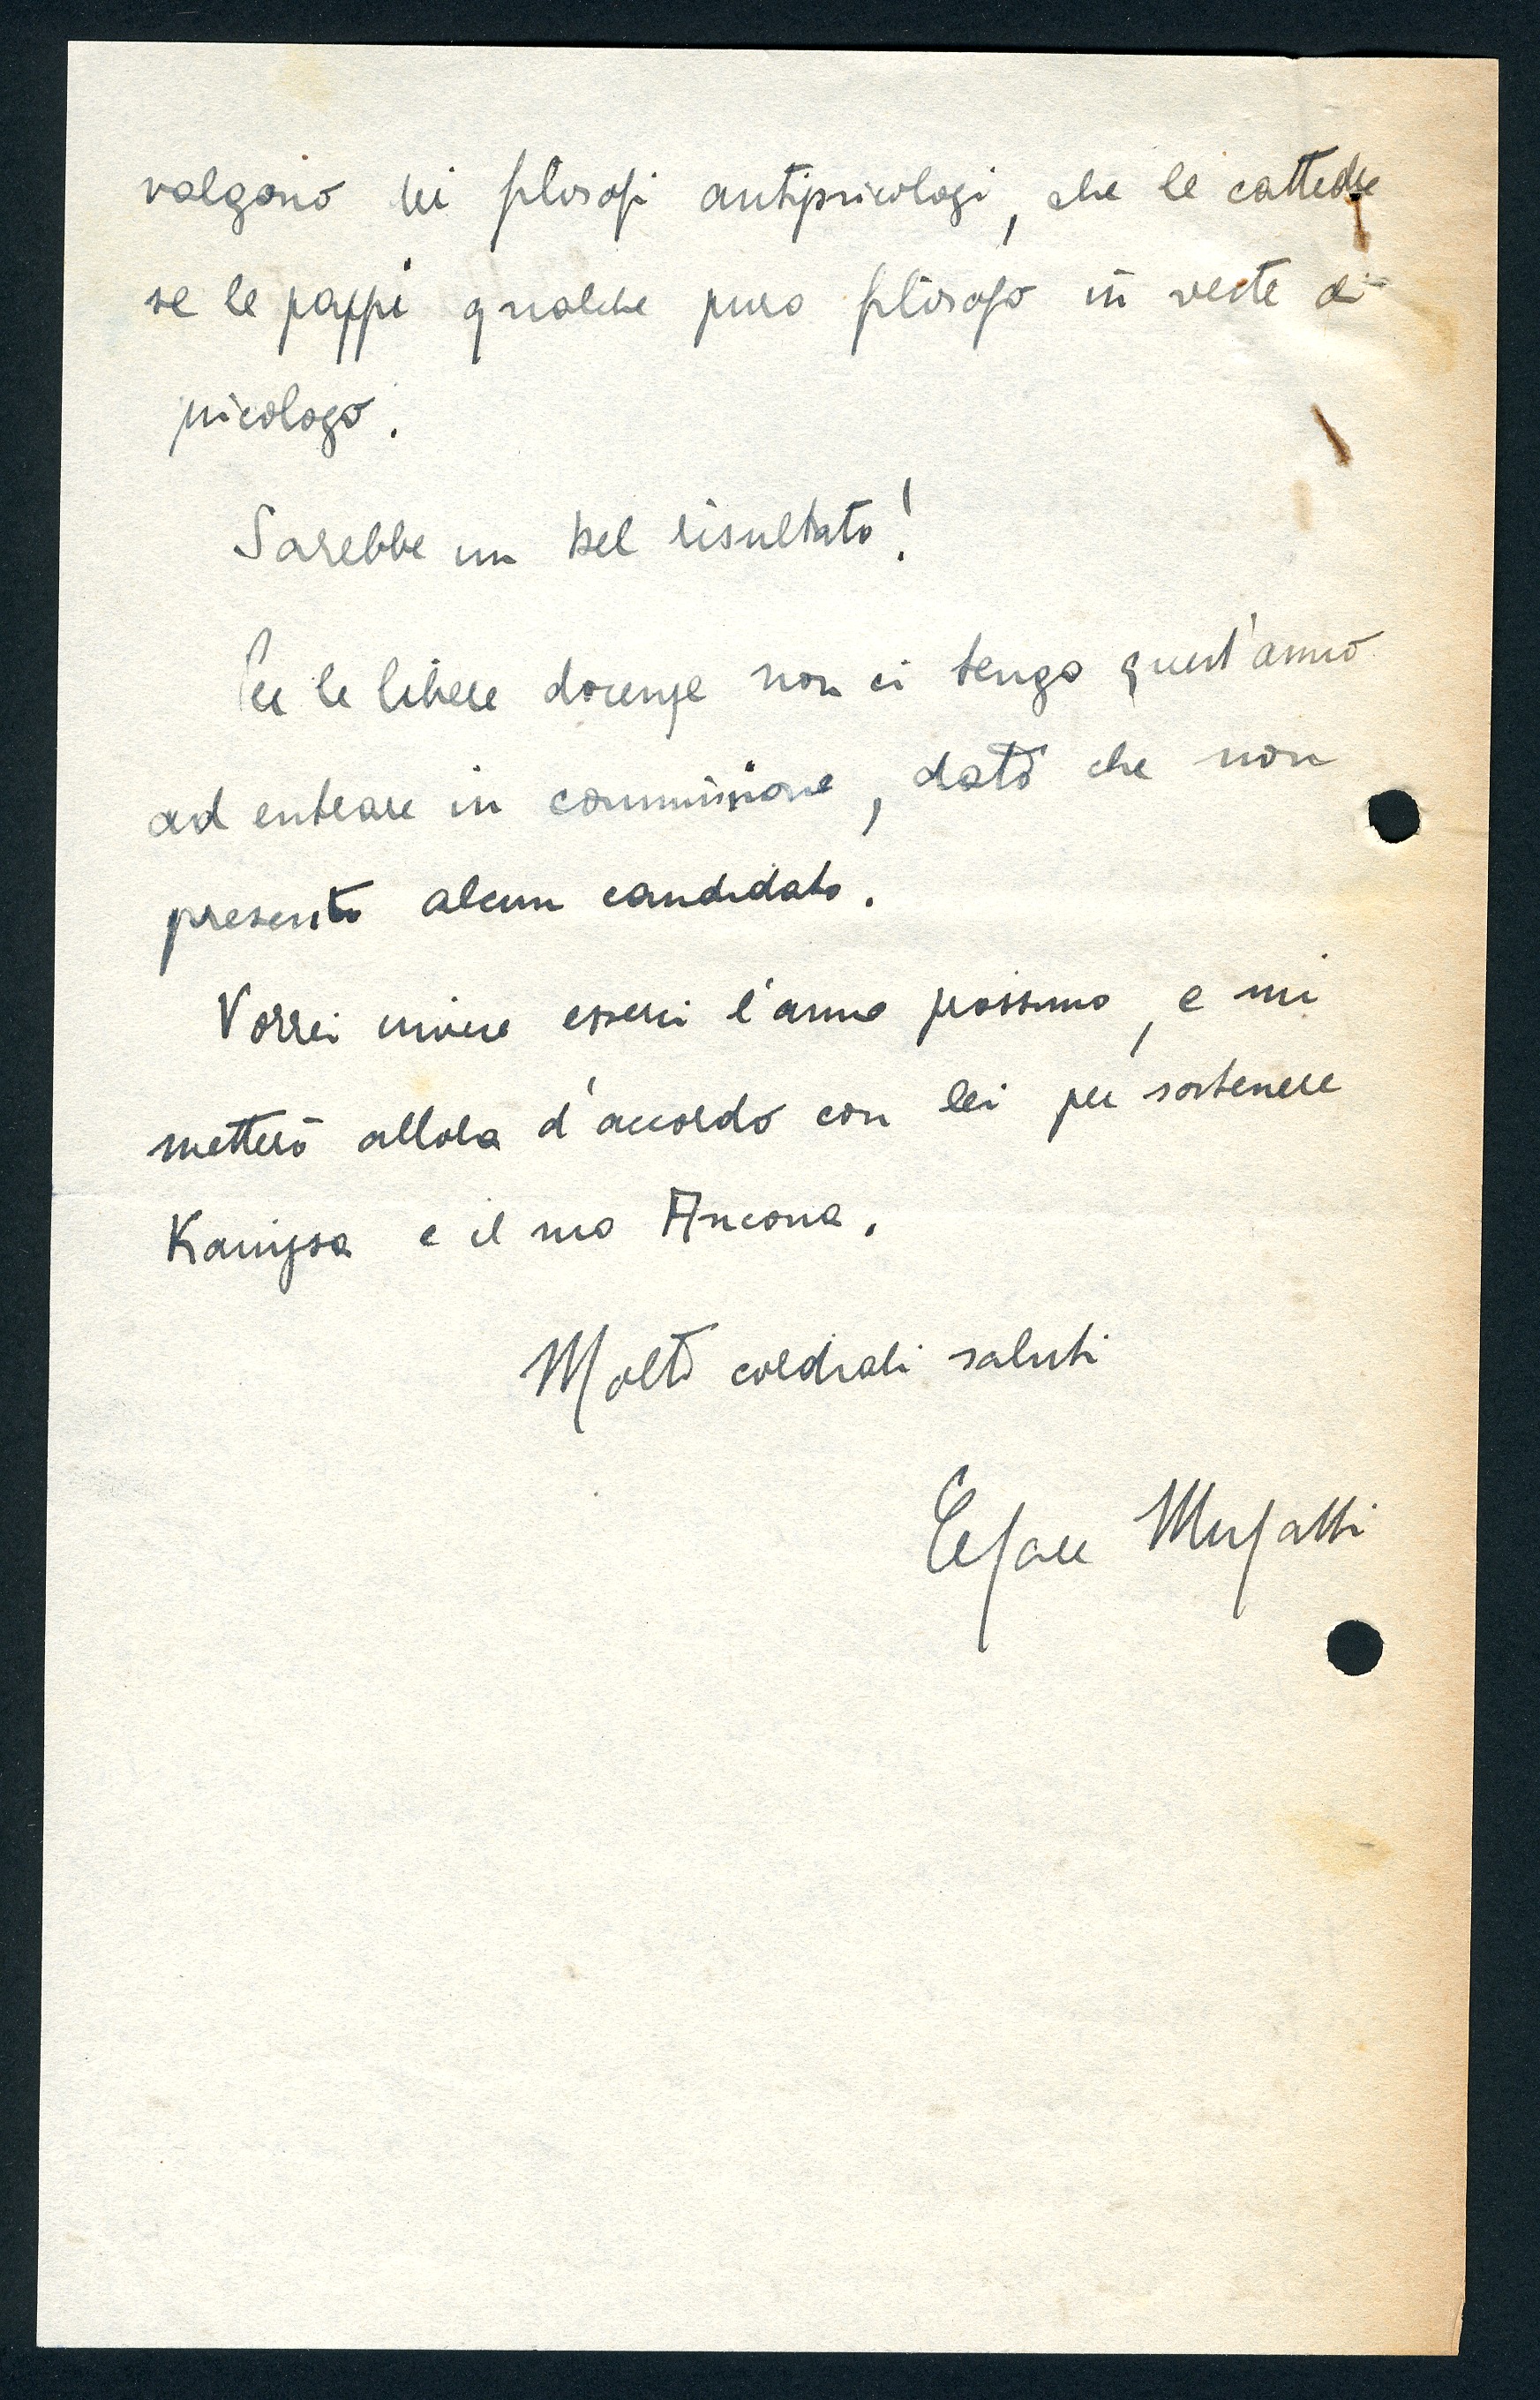 valgono dei filosofi antipsicologi, che le cattedre
se le pappi qualche puro filosofo in veste di
psicologo.
Sarebbe un bel risultato!
Per le libere docenze non ci tengo quest'anno
ad entrare in commissione, dato che non
presento alcun candidato.
Vorrei invece esserci l'anno prossimo, e mi
metterò allora d'accordo con lei per sostenere
Kanizsa e il suo Ancona.
Molti cordiali saluti
Cesare Musatti